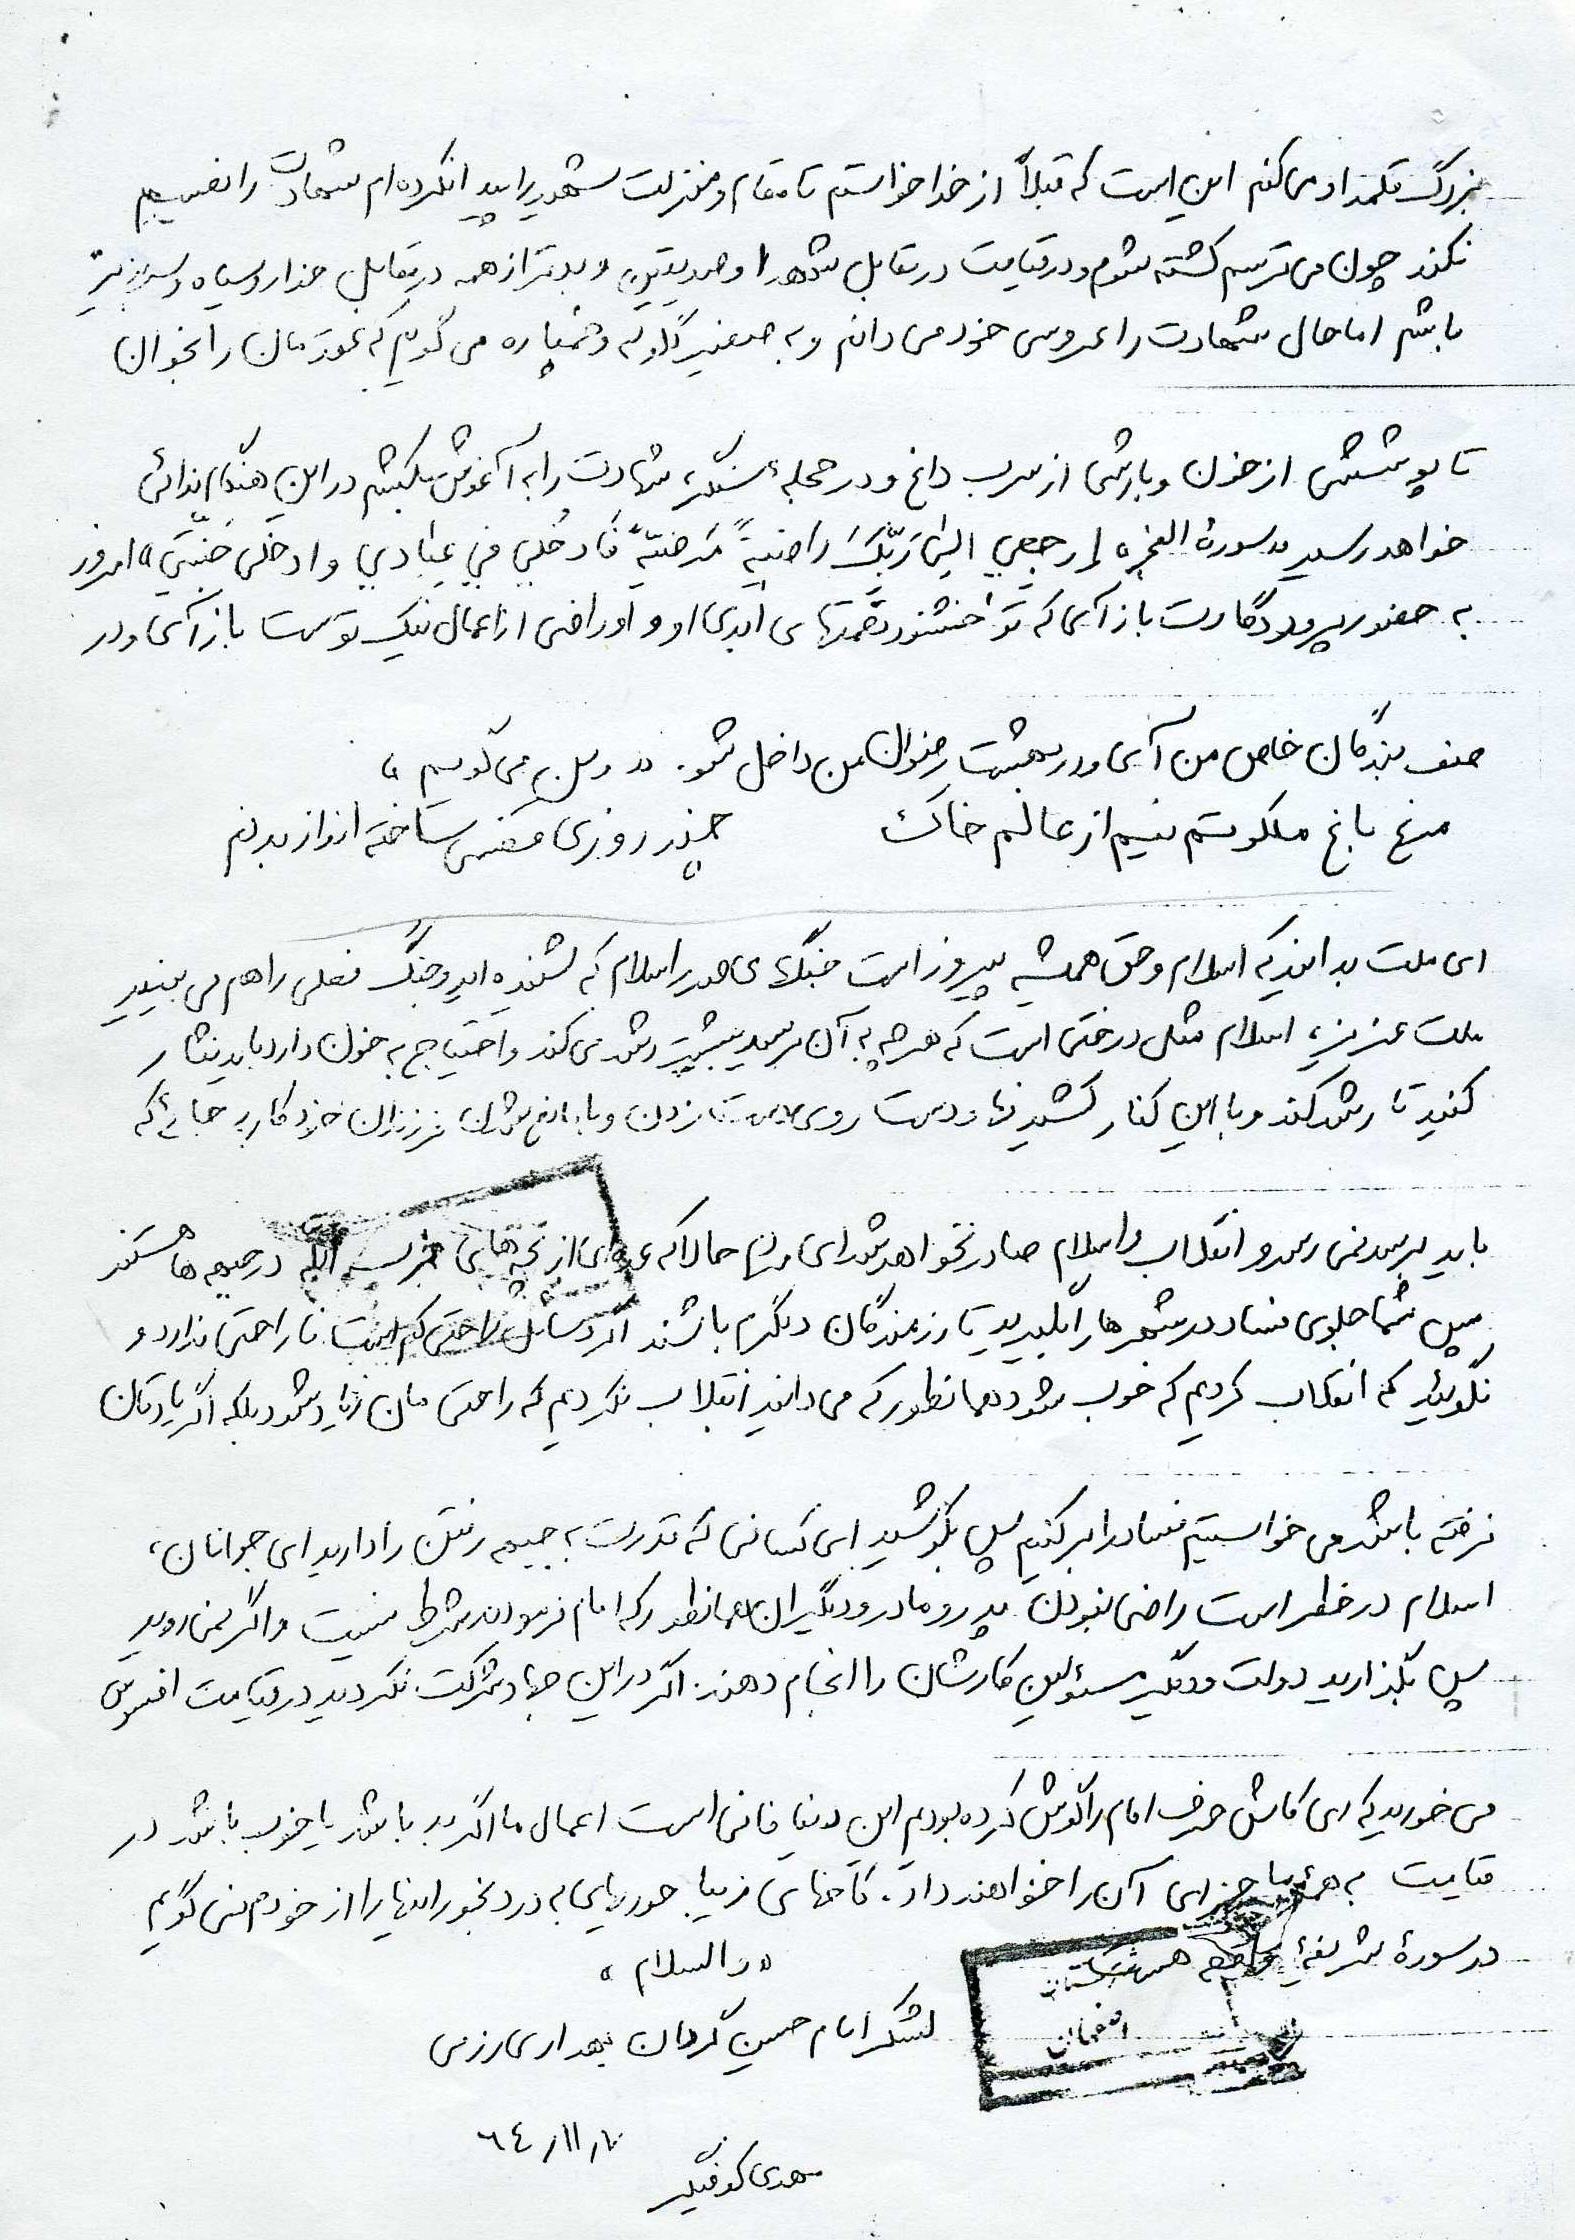 بزرگ قلمداد می کنم این است که قبلاً از خدا خواستم تا مقام و منزلت شهید را پیدا نکرده ام شهادت را نصیبم
نکند چون می ترسم کشته شوم و در قیامت در مقابل شهدا و صدیقین و بدتر از همه در مقابل خدا روسیاه و سر بزیر
باشم اما حال شهادت را عروس خود می دانم و به صفیر گلوله و خمپاره می گویم که عقدمان را بخوان
تا پوششی از خون و بارشی از سرب داغ و در حجلهٔ سنگر، شهادت را به آغوش بکشم در این هنگام ندائی
خواهد رسید «سورهٔ الفجر» ارجعي الی رَبِّکَ راضیةً مَرضیّةً فَادخُلي في عِبادي وادخلی جَنَّتي» امروز
به حضور پروردگارت باز آی که تو خشنود نعمتهای ابدی او و او راضی از اعمال نیک توست باز آی و در
صف بندگان خاص من آی و در بهشت رضوان من داخل شو. «و من می گویم»
مرغ باغ ملکوتم نیم از عالم خاک چند روزی قفسی ساخته اند از بدنم
ای ملت بدانید که اسلام و حق همیشه پیروز است جنگهای صدر اسلام که شنیده اید و جنگ فعلی را هم می بینید
ملت عزیز، اسلام مثل درختی است که هر چه به آن برسید بیشتر رشد می کند و احتیاج به خون دارد باید نثار
کنید تا رشد کند و با این کنار کشیدنها و دست روی دست زدن و با مانع شدن فرزندان خود کار به جائی که
باید برسد نمی رسد و انقلاب و اسلام صادر نخواهد شد ای مردم حالا که عده ای از بچه های حزب الله در جبهه ها هستند
پس شما جلوی فساد در شهرها را بگیرید تا رزمندگان دلگرم باشند اگر وسائل راحتی کم است ناراحتی ندارد و
نگوئید که انقلاب کردیم که خوب شود همانطور که می دانید انقلاب نکردیم که راحتی مان زیاد شود بلکه اگر یادتان
نرفته باشد می خواستیم فساد را بر کنیم پس بکوشید ای کسانی که قدرت به جبهه رفتن را دارید ای جوانان،
اسلام در خطر است راضی نبودن پدر و مادر و دیگران همانطور که امام فرمودند شرط نیست و اگر نمی روید
پس بگذارید دولت و دیگر مسئولین کارشان را انجام دهند. اگر در این جهاد شرکت نکردید در قیامت افسوس
می خورید که ای کاش حرف امام را گوش کرده بودیم این دنیا فانی است اعمال ما اگر بد باشد یا خوب باشد در
قیامت به همهٔ ما جزای آن را خواهند داد. کاخهای زیبا حوریهایی به درد بخور اینها را از خودم نمی گویم
در سورهٔ شریفهٔ واقعه هست
«والسلام»
لشکر امام حسین گردان بهداری رزمی
۶٤/۱۱/
مهدی کوفیگر
اصفهان